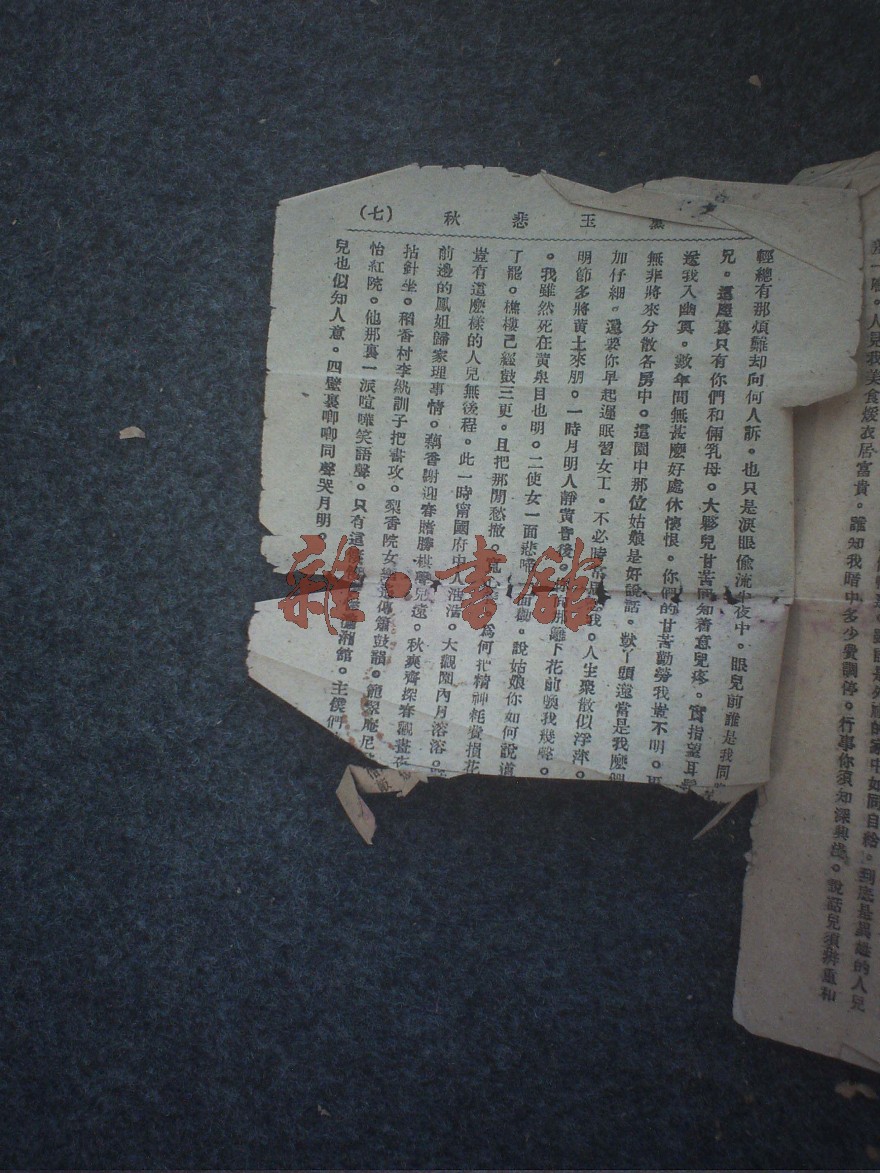 玉悲秋 (七)
輕總有那煩難却向何人訴。也只是淚眼偷流半夜中。眼兒前誰是我同
兄。這屋裏只有你們和倆乳母。大夥兒甘苦同知着意兒疼。實指望耳
送我入幽冥。數年間無甚麼好處休懷恨。你們的甘苦勤勞我豈不明。
無非將來分散各房中。這園中那位姑娘是好說話。獃丫頭還當是我麼
加仔細。還要你早起遲眠習女工。不必時常 我。人生聚散似浮萍。
明節多將黃土來朋。一時月明人靜黃昏後。 那籬下花前喚我幾聲。
。我雖然死在黃泉目也明。二使女一面悲啼 面勸。說姑娘你如何說道
了罷。樵樓已經鼓三更。且把那閒愁撤。 心 爲何把精神耗費損花
豈有這麼樣的人兒無後程。此一時甯國府中人浩浩。大觀園內月溶溶。
前邊的鳳姐歸家理事情。藕香榭迎春賭勝棋聲兒遠。秋爽齊探春觀畫
拈針坐。稻香村李紈訓子把書攻。梨香院女樂 傳簫鼓韻。籠翠庵尼
怡紅院。他那裏一派喧嘩笑語聲。只有這 湘館。主僕們
兒也似知人意。四壁裏唧唧同聲哭月明。
人見我美食煖衣居富貴。誰知我暗中多少費調停。行事你須知深與淺。說話兒須辨重和
的家中如同自給。到底是 的人兒
雜·書館